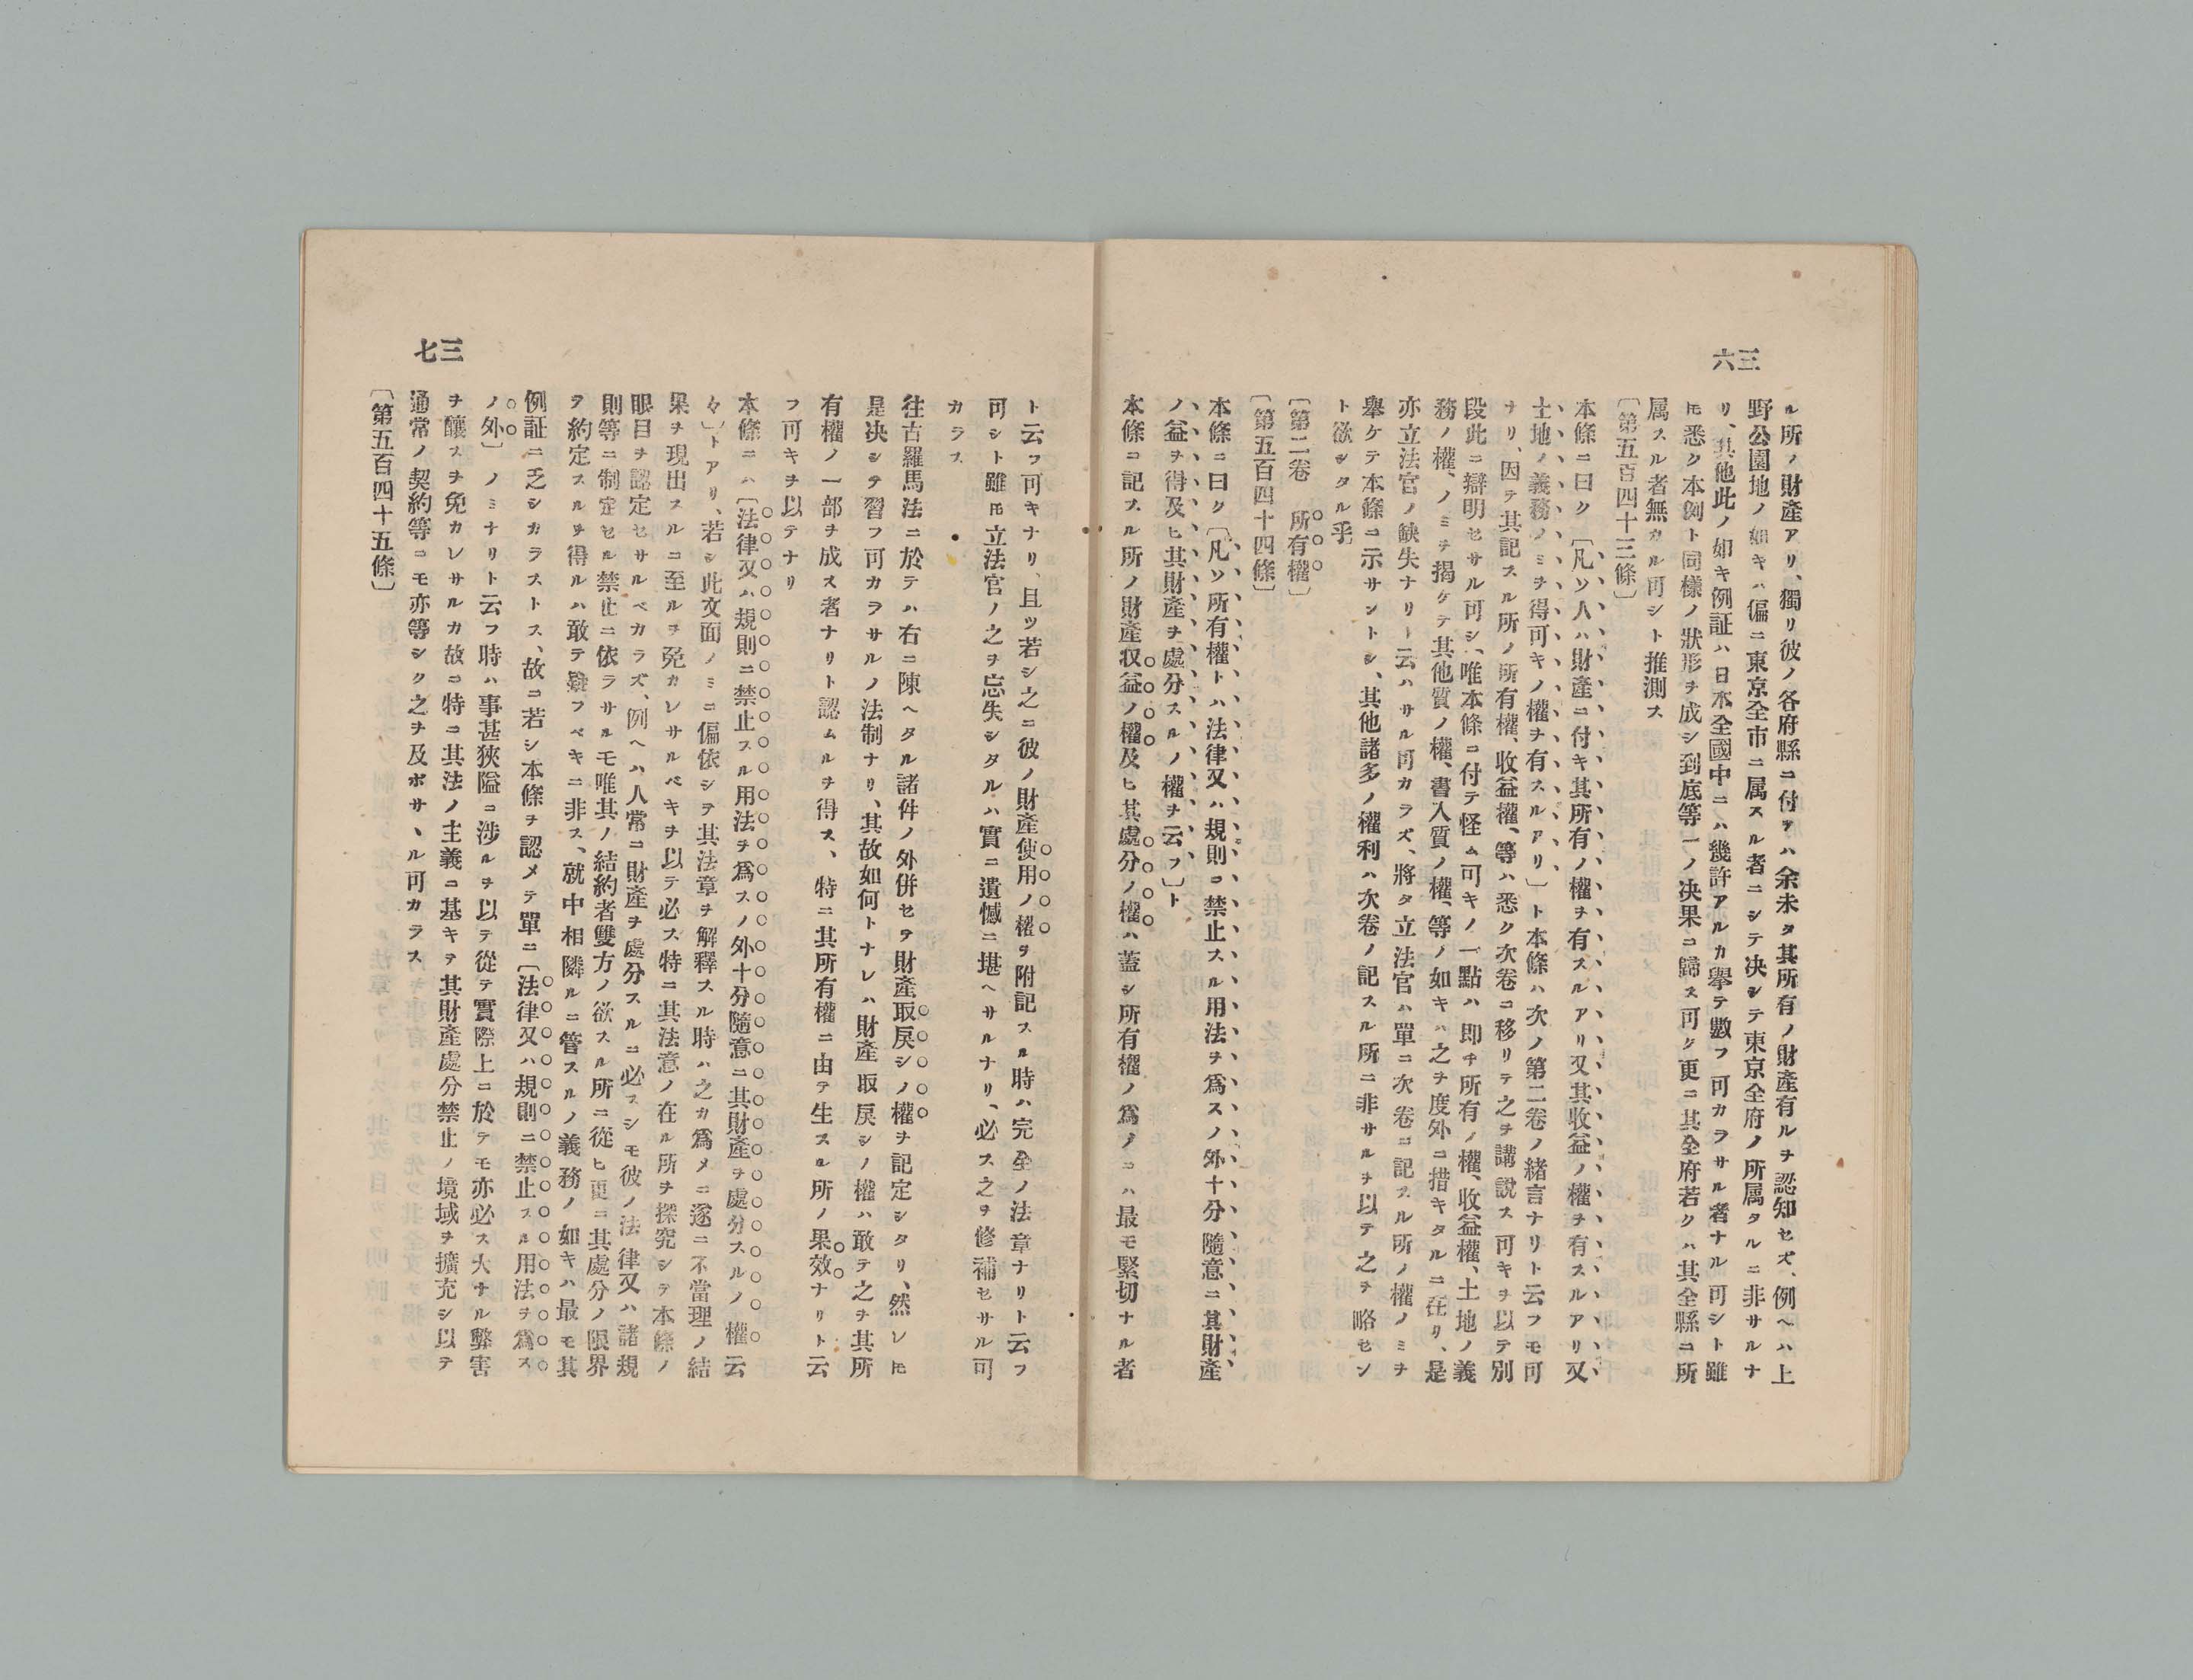 三六
ル所ノ財產アリ、獨リ彼ノ各府縣ニ付テハ余未タ其所有ノ財產有ルヲ認知セズ、例ヘハ上
野公園地ノ如キハ偏ニ東京全市ニ属スル者ニシテ决シテ東京全府ノ所属タルニ非サルナ
リ、其他此ノ如キ例証ハ日本全國中ニハ幾許アルカ擧テ數フ可カラサル者ナル可シト雖
𪜈悉ク本例ト同樣ノ狀形ヲ成シ到底等一ノ决果ニ歸ス可ク更ニ其全府若クハ其全縣ニ所
属スル者無カル可シト推測ス
〔第五百四十三條〕
本條ニ曰ク〔凡ソ人ハ財產ニ付キ其所有ノ權ヲ有スルアリ又其收益ノ權ヲ有スルアリ又
土地ノ義務ノミヲ得可キノ權ヲ有スルアリ〕ト本條ハ次ノ第二卷ノ緒言ナリト云フモ可
ナリ、因テ其記スル所ノ所有權、收益權、等ハ悉ク次卷ニ移リテ之ヲ講說ス可キヲ以テ別
段此ニ辯明セサル可シ、唯本條ニ付テ怪ム可キノ一點ハ即チ所有ノ權、收益權、土地ノ義
務ノ權、ノミヲ揭ケテ其他質ノ權、書入質ノ權、等ノ如キハ之ヲ度外ニ措キタルニ在リ、是
亦立法官ノ缺失ナリト云ハサル可カラズ、將タ立法官ハ單ニ次卷ニ記スル所ノ權ノミヲ
舉ケテ本條ニ示サントシ、其他諸多ノ權利ハ次卷ノ記スル所ニ非サルヲ以テ之ヲ略セン
ト欲シタル乎
〔第二卷　所有權〕
〔第五百四十四條〕
本條ニ曰ク〔凡ソ所有權トハ法律又ハ規則ニ禁止スル用法ヲ爲スノ外十分隨意ニ其財產
ノ益ヲ得及ヒ其財產ヲ處分スルノ權ヲ云フ〕ト
本條ニ記スル所ノ財產収益ノ權及ヒ其處分ノ權ハ蓋シ所有權ノ爲ノニハ最モ緊切ナル者
三七
ト云フ可キナリ、且ツ若シ之ニ彼ノ財產使用ノ權ヲ附記スル時ハ完全ノ法章ナリト云フ
可シト雖𪜈立法官ノ之ヲ忘失シタルハ實ニ遺憾ニ堪ヘサルナリ、必ス之ヲ修補セサル可
カラス
往古羅馬法ニ於テハ右ニ陳ヘタル諸件ノ外併セテ財產取戻シノ權ヲ記定シタリ、然レ𪜈
是决シテ習フ可カラサルノ法制ナリ、其故如何トナレハ財產取戾シノ權ハ敢テ之ヲ其所
有權ノ一部ヲ成ス者ナリト認ムルヲ得ス、特ニ其所有權ニ由テ生スル所ノ果效ナリト云
フ可キヲ以テナリ
本條ニハ〔法律又ハ規則ニ禁止スル用法ヲ爲スノ外十分隨意ニ其財產ヲ處分スルノ權云
々〕トアリ、若シ此文面ノミニ偏依シテ其法章ヲ解釋スル時ハ之カ爲メニ遂ニ不當理ノ結
果ヲ現出スルニ至ルヲ免カレサルベキヲ以テ必ス特ニ其法意ノ在ル所ヲ探究シテ本條ノ
眼目ヲ認定セサルベカラズ、例ヘハ人常ニ財產ヲ處分スルニ必スシモ彼ノ法律又ハ諸規
則等ニ制定セル禁止ニ依ラサルモ唯其ノ結約者雙方ノ欲スル所ニ從ヒ更ニ其處分ノ限界
ヲ約定スルヲ得ルハ敢テ疑フベキニ非ス、就中相隣ルニ管スルノ義務ノ如キハ最モ其
例証ニ乏シカラストス、故ニ若シ本條ヲ認メテ單ニ〔法律又ハ規則ニ禁止スル用法ヲ爲ス
ノ外〕ノミナリト云フ時ハ事甚狹隘ニ涉ルヲ以テ從テ實際上ニ於テモ亦必ス大ナル弊害
ヲ釀スヲ免カレサルカ故ニ特ニ其法ノ主義ニ基キテ其財產處分禁止ノ境域ヲ擴充シ以テ
通常ノ契約等ニモ亦等シク之ヲ及ボサヽル可カラス
〔第五百四十五條〕